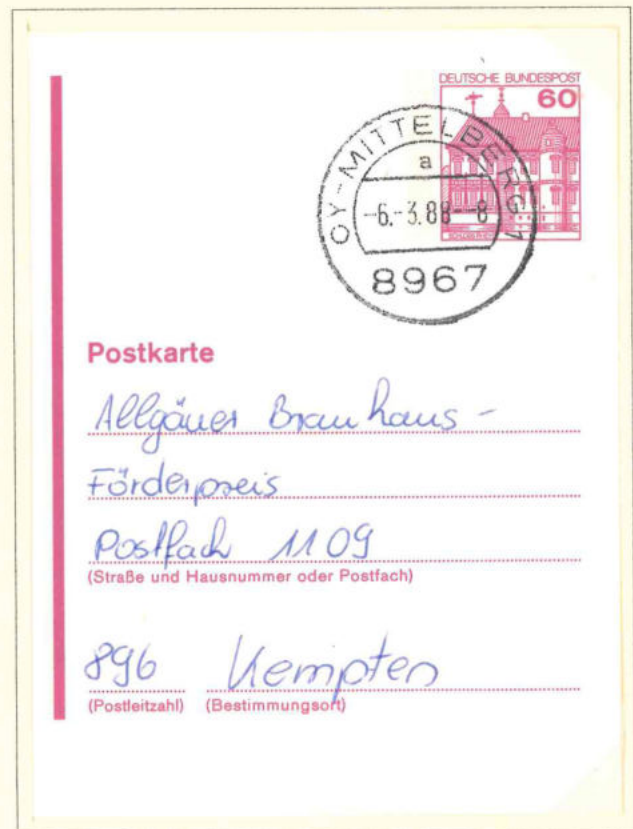 DEUTSCHE BUNDESPOST
60
OY-MITTELBERG 1
a
-6.-3.88--8
8967
Postkarte
Allgäuer Brauhaus-
Förderpreis
Postfach 1109
(Straße und Hausnummer oder Postfach)
896 Kempten
(Postleitzahl) (Bestimmungsort)